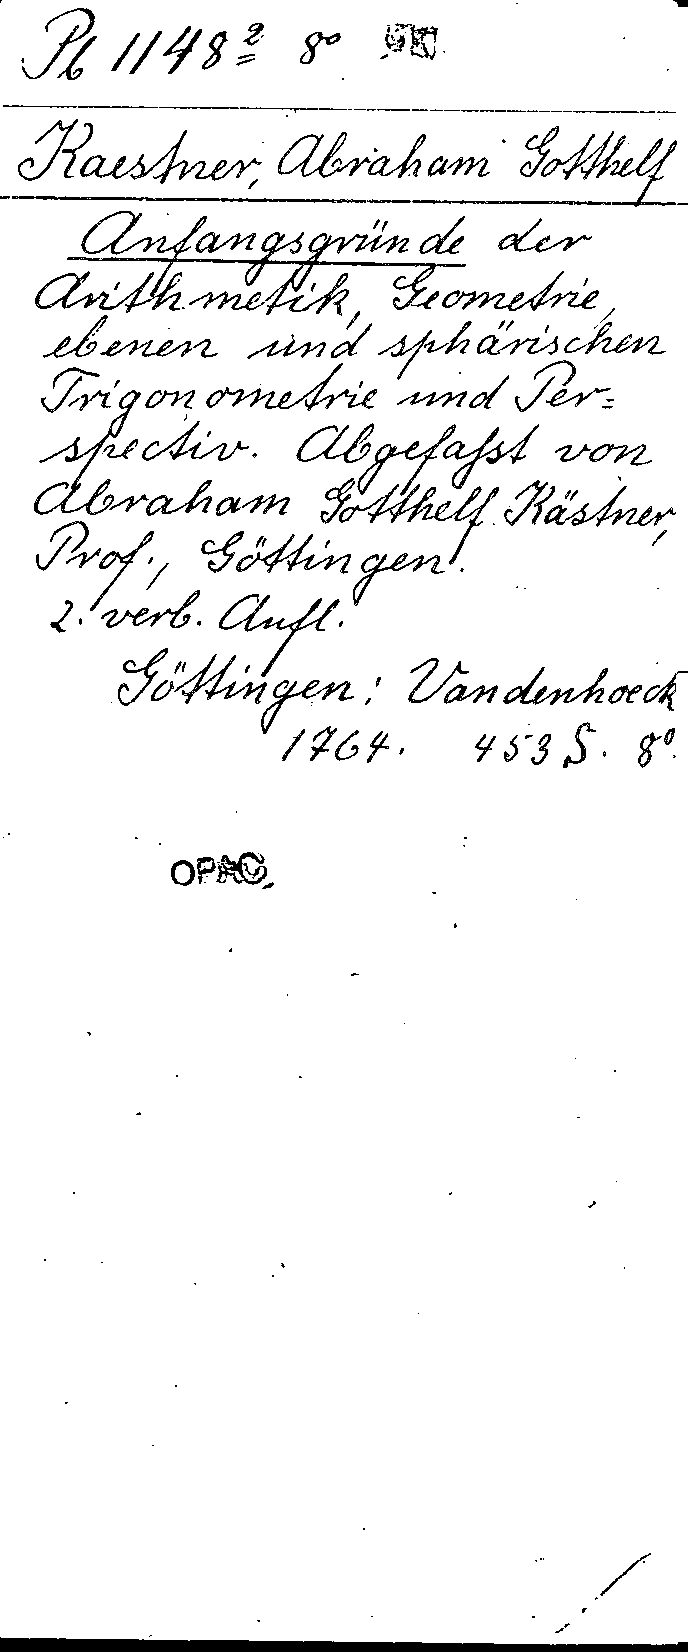 Pb 1148² 8°
Kaestner, Abraham Gotthelf
Anfangsgründe der
Arithmetik, Geometrie,
ebenen und sphärischen
Trigonometrie und Per=
spectiv. Abgefaßt von
Abraham Gotthelf Kästner,
Prof., Göttingen.
2. verb. Aufl.
Göttingen: Vandenhoeck
1764. 453 S. 8°.
OPAC